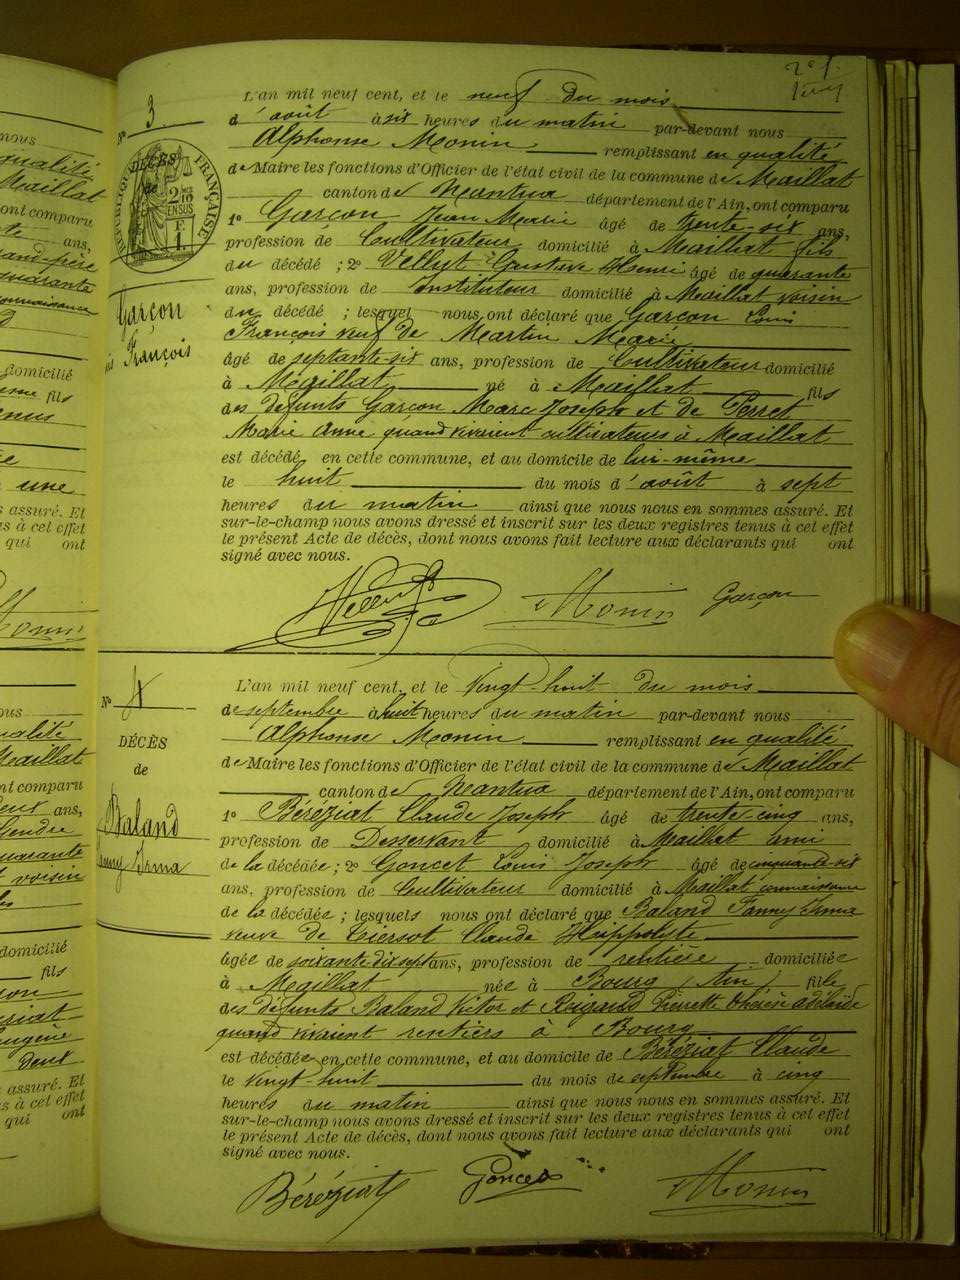 2e f.
N° 3
DÉCÈS
de
RÉPUBLIQUE FRANÇAISE
Garçon
François
L'an mil neuf cent, et le neuf du mois
d'août à six heures du matin par-devant nous
Alphonse Monin remplissant en qualité
de Maire les fonctions d'Officier de l'état civil de la commune de Maillat
canton de Nantua département de l'Ain, ont comparu
1° Garçon Jean Marie âgé de trente-six ans,
profession de Cultivateur domicilié à Maillat fils
du décédé ; 2° Vellut Gustave Henri âgé de quarante
ans, profession de Instituteur domicilié à Maillat voisin
du décédé ; lesquel nous ont déclaré que Garçon Louis
François veuf de Martin Marie
âgé de septante-six ans, profession de Cultivateur domicilié
à Maillat né à Maillat fils
des défunts Garçon Marc Joseph et de Perret
Marie Anne quand vivaient cultivateurs à Maillat
est décédé en cette commune, et au domicile de lui-même
le huit du mois d'août à sept
heures du matin ainsi que nous nous en sommes assuré. Et
sur-le-champ nous avons dressé et inscrit sur les deux registres tenus à cet effet
le présent Acte de décès, dont nous avons fait lecture aux déclarants qui ont
signé avec nous.
Vellut Monin Garçon
N° 4
DÉCÈS
de
Baland
Fanny Irma
L'an mil neuf cent, et le vingt-huit du mois
de septembre à huit heures du matin par-devant nous
Alphonse Monin remplissant en qualité
de Maire les fonctions d'Officier de l'état civil de la commune de Maillat
canton de Nantua département de l'Ain, ont comparu
1° Béréziat Claude Joseph âgé de trente-cinq ans,
profession de Desservant domicilié à Maillat ami
de la décédée ; 2° Goncet Louis Joseph âgé de cinquante-six
ans, profession de Cultivateur domicilié à Maillat connaissance
de la décédée ; lesquels nous ont déclaré que Baland Fanny Irma
veuve de Tiersot Claude Hippolyte
âgée de soixante dix sept ans, profession de rentière domiciliée
à Maillat née à Bourg Ain fille
des défunts Baland Victor et Pierrette adélaïde
quand vivaient rentiers à Bourg
est décédée en cette commune, et au domicile de Béréziat Claude
le vingt-huit du mois de septembre à cinq
heures du matin ainsi que nous nous en sommes assuré. Et
sur-le-champ nous avons dressé et inscrit sur les deux registres tenus à cet effet
le présent Acte de décès, dont nous avons fait lecture aux déclarants qui ont
signé avec nous.
Béréziat Goncet Monin